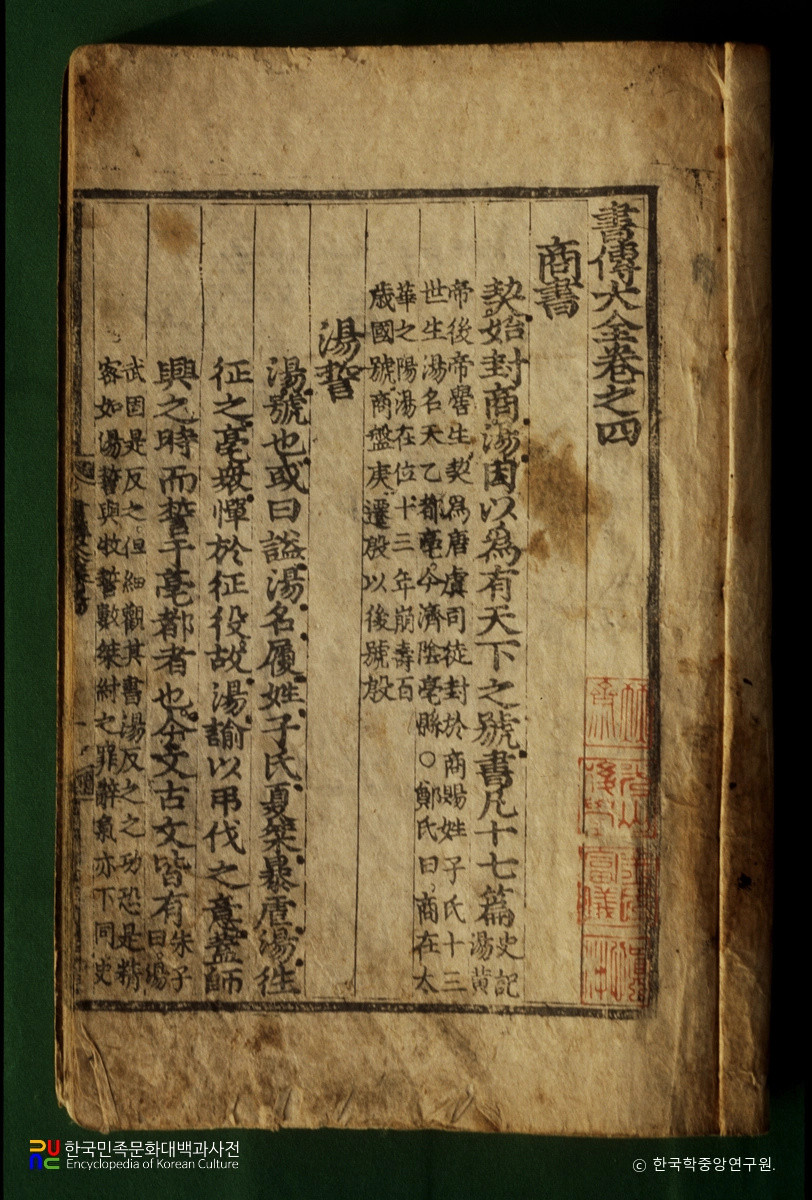 書傳大全卷之四
商書
契始封商湯因以爲有天下之號書凡十七篇史記湯黃
帝後帝嚳生契爲唐虞司徒封於商賜姓子氏十三
世生湯名天乙都亳今濟陰亳縣○鄭氏曰商在太
華之陽湯在位十三年崩壽百
歲國號商盤庚遷殷以後號殷
湯誓
湯號也或曰謚湯名履姓子氏夏桀暴虐湯徃
征之亳衆憚於征役故湯諭以弔伐之意蓋師
興之時而誓于亳都者也今文古文皆有朱子曰湯
武固是反之但細觀其書湯反之之功恐是精
密如湯誓與牧誓數桀紂之罪辭氣亦不同史
한국민족문화대백과사전
Encyclopedia of Korean Culture
© 한국학중앙연구원.